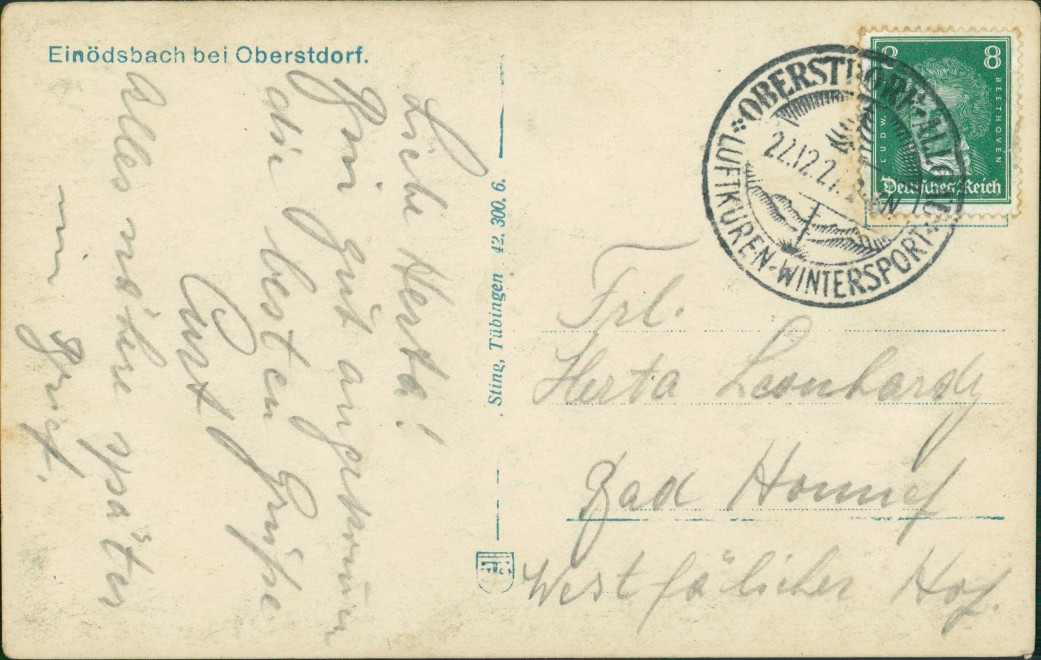 Einödsbach bei Oberstdorf.
Liebe Herta!
Bin gut angekommen
die besten Grüsse
Curt
Alles nähere später
im Brief.
Sting, Tübingen 42,300,6.
OBERSTDORF-ALLGÄU
22.12.27
LUFTKUREN-WINTERSPORT
8 8
LUDW. BEETHOVEN
Deutsches Reich
Frl.
Herta Leonhardy
Bad Honnef
Westfälischer Hof.